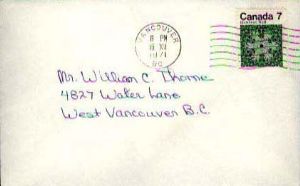 VANCOUVER
PM
XI
1971
BC
Canada 7
Mr. William C. Thorne
4827 Water Lane
West Vancouver B.C.